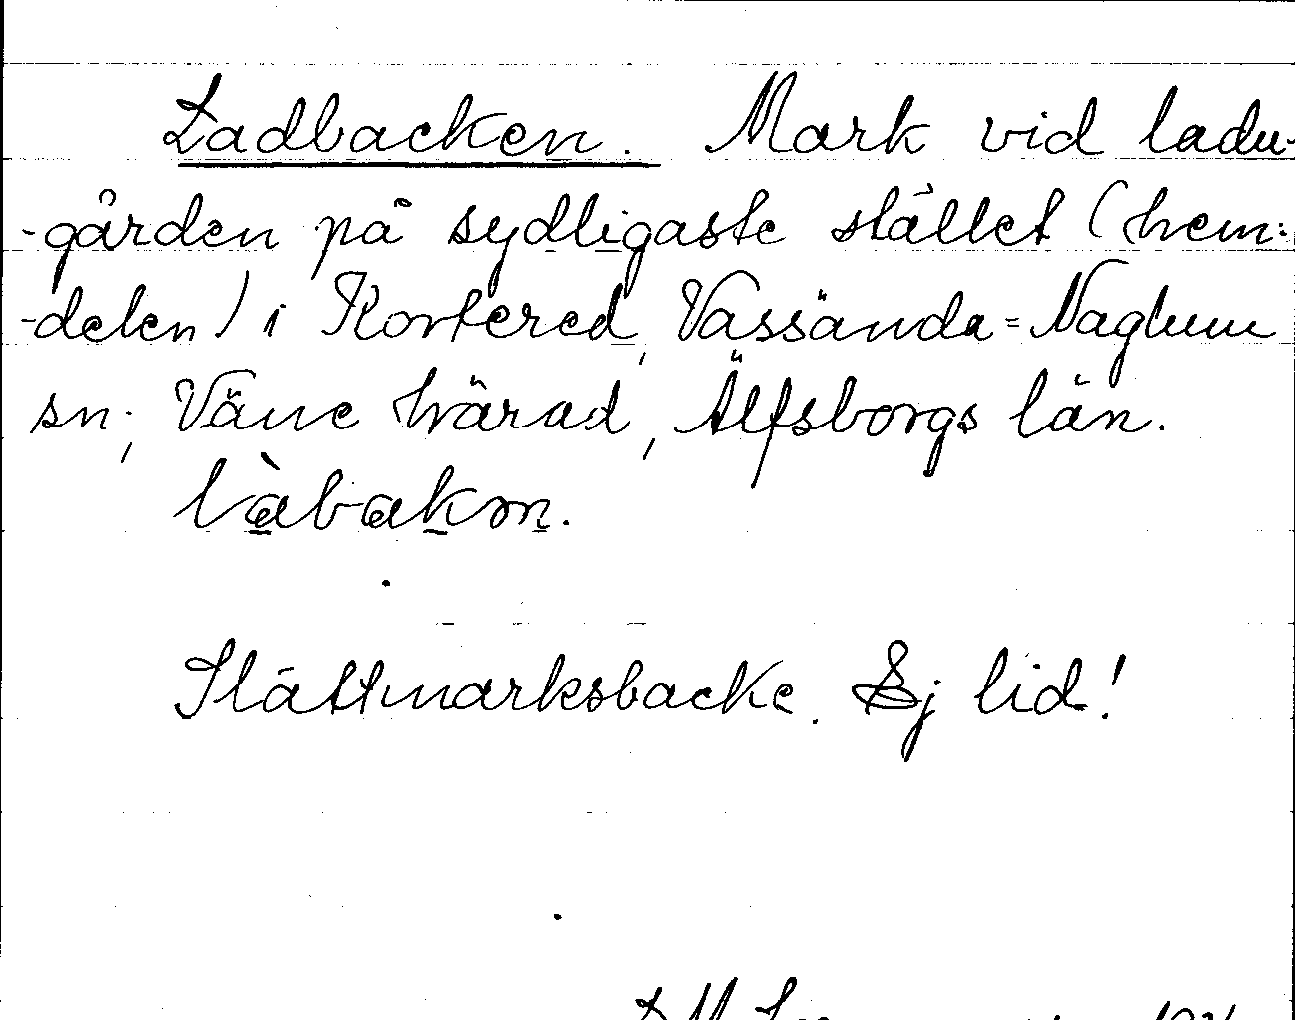 Ladbacken. Mark vid ladu-
-gården på sydligaste stället (hem-
-delen) i Kortered, Vassända=Naglum
sn; Väne härad, Älfsborgs län.
làbakɷn.
Slättmarksbacke. Ej lid!